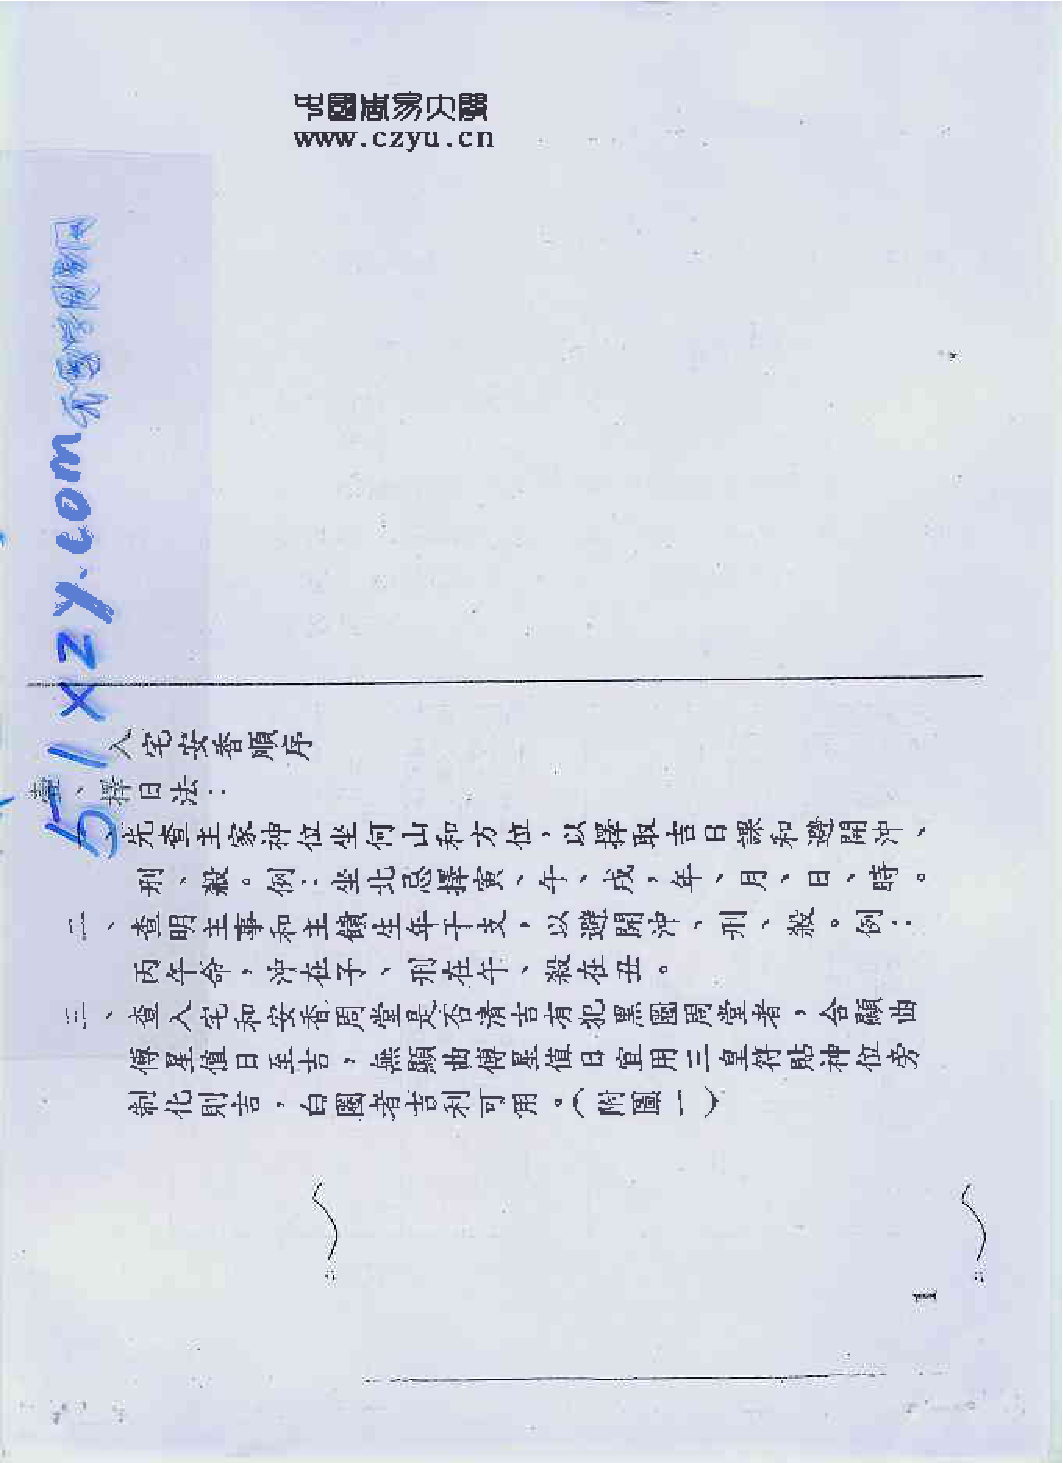 中國周易大學
www.czyu.cn
51xzy.com
入宅安香順序
壹、擇日法：
一、先查主家神位坐何山和方位，以擇取吉日課和避開沖、
刑、殺。例：坐北忌擇寅、午、戌，年、月、日、時。
二、查明主事和主饋生年干支，以避開沖、刑、殺。例：
丙午命，沖在子、刑在午、殺在丑。
三、查入宅和安香周堂是否清吉有犯黑圈周堂者，合顯曲
傅星值日至吉，無顯曲傅星值日宜用三皇符貼神位旁
制化則吉，白圈者吉利可用。（附圖一）
1